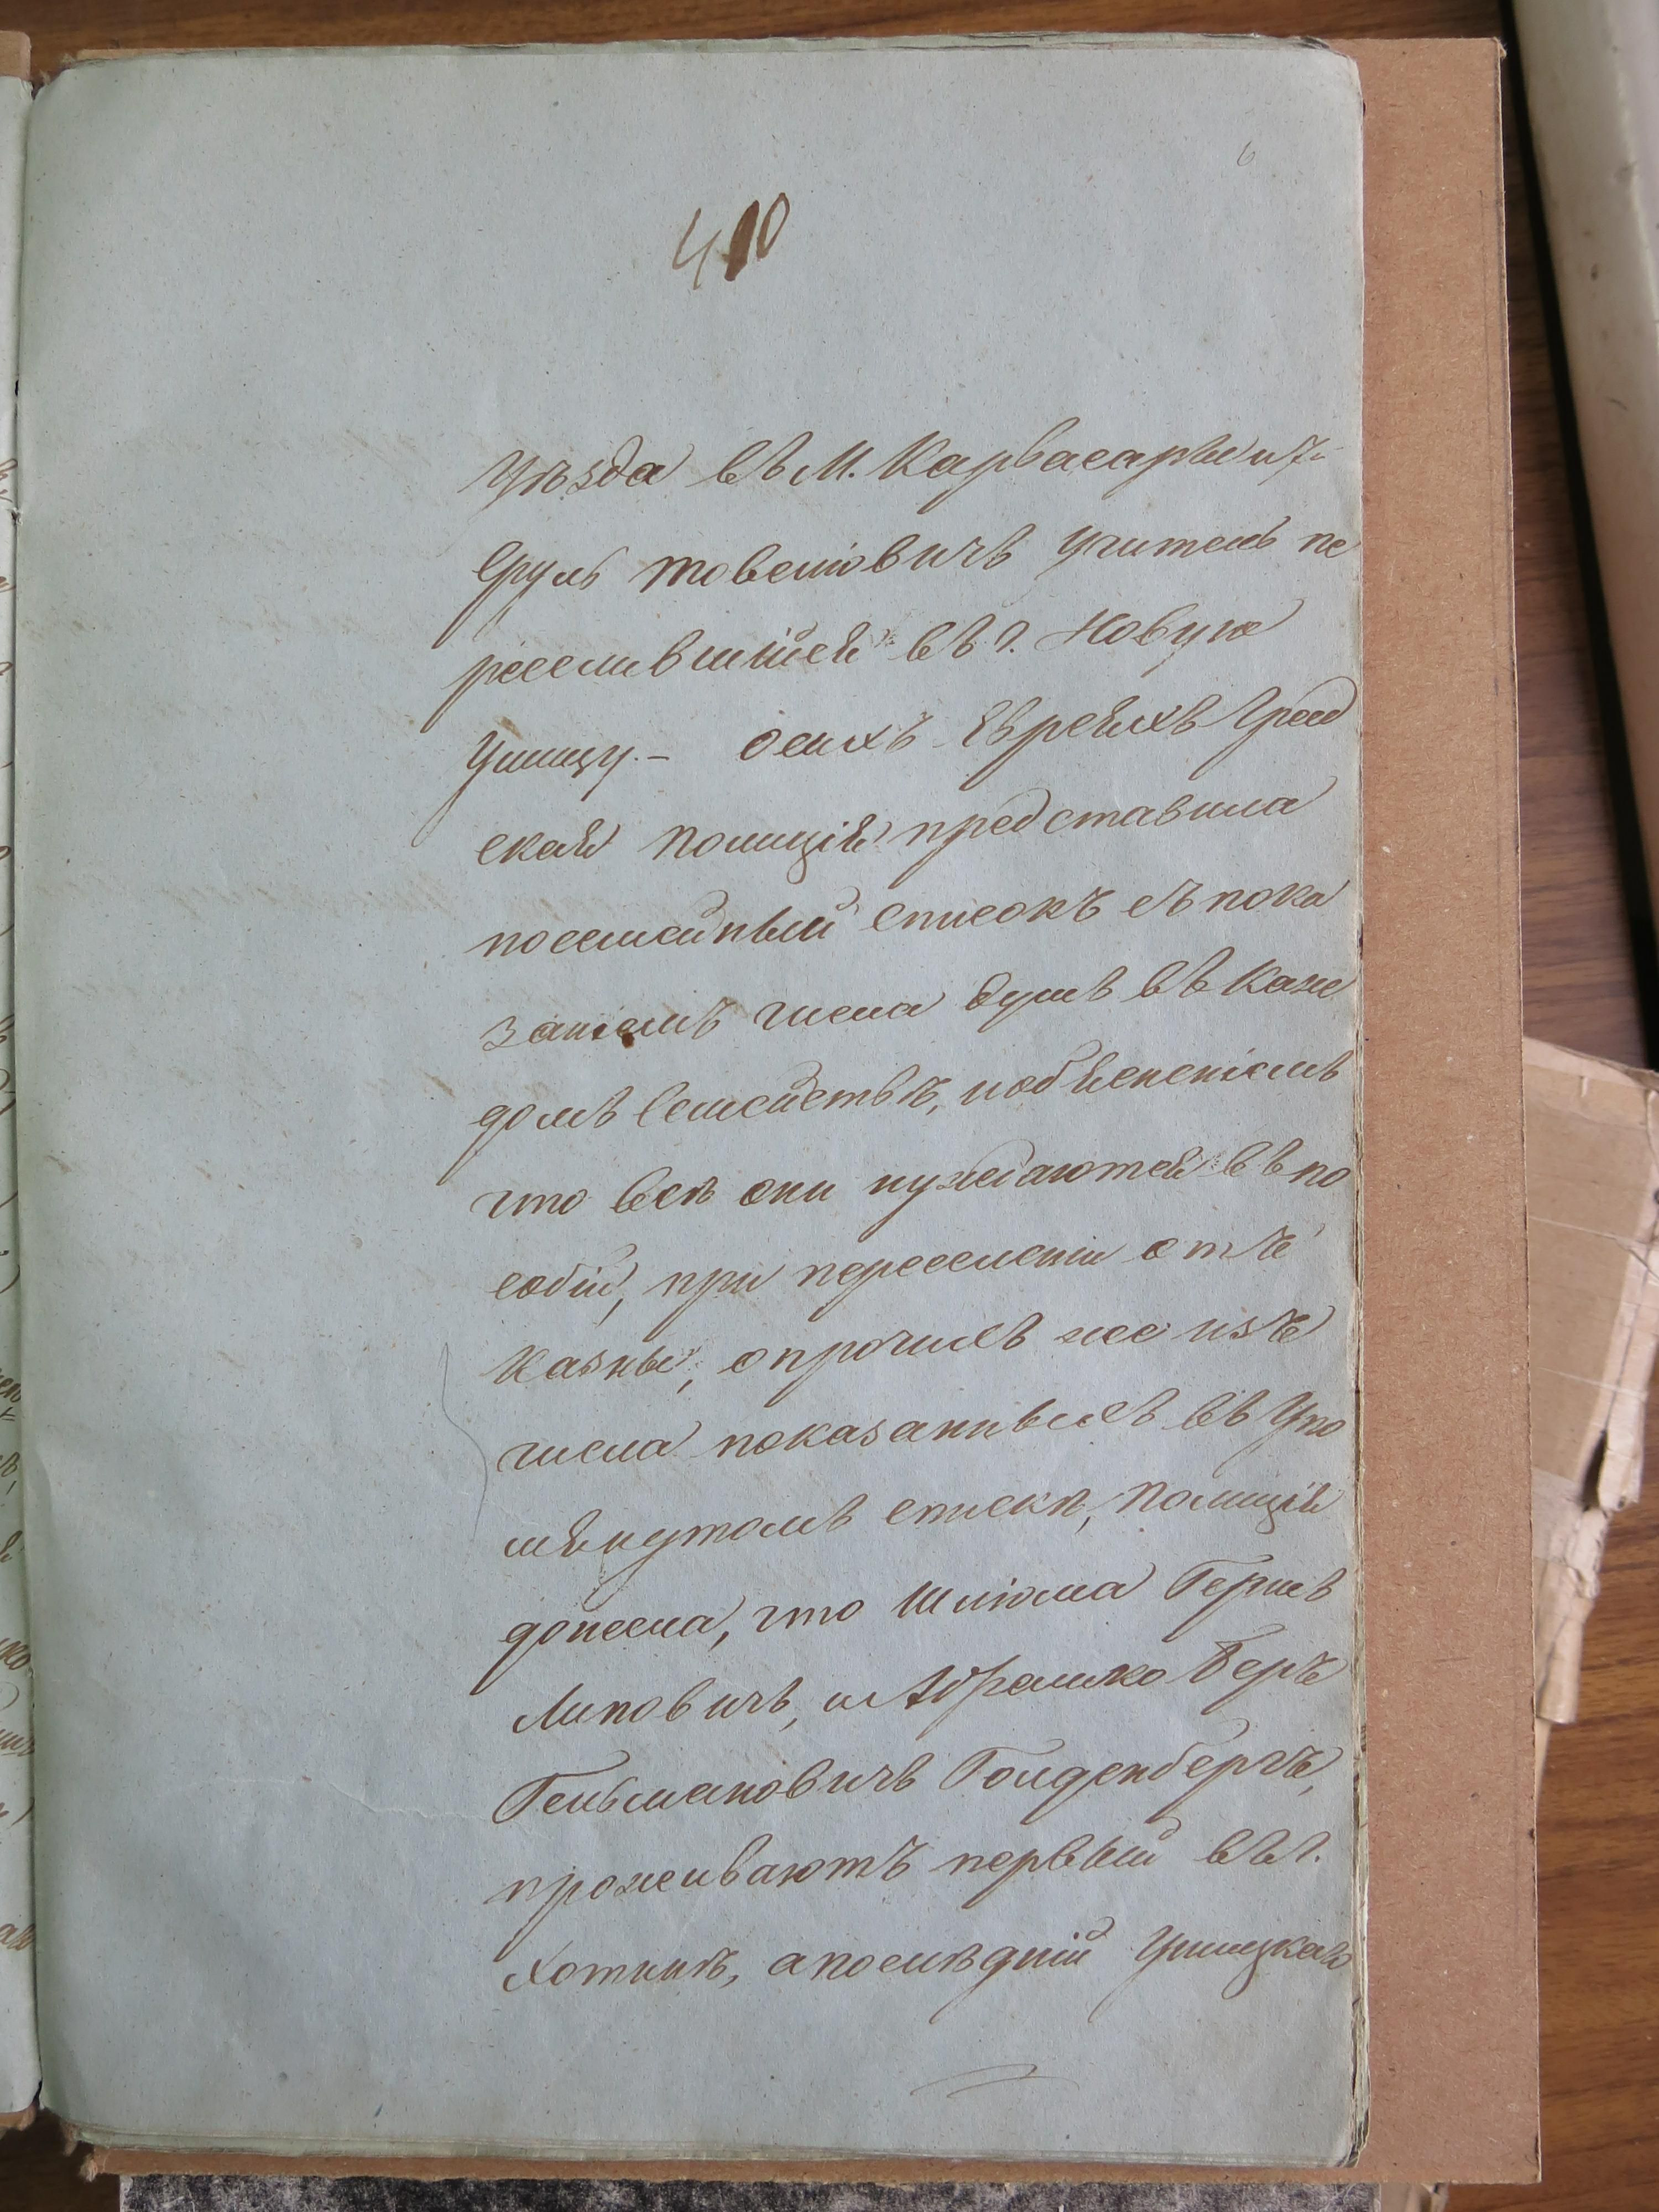 6
410
уѣзда въ М. Карвасарѣ и 7.
Сруль Товелювичъ Учитель пе
реселившійся въ г. Новую
Ушицу. – О сихъ Евреяхъ Град
ская Полиція представила
посемейный списокъ съ пока
заніемъ числа душъ въ каж
домъ семействѣ, и объясненіемъ
что всѣ они нуждаются въ по
собіи, при переселеніи отъ
Казны, о прочихъ же изъ
числа показанныхъ въ Упо
мянутомъ спискѣ, Полиція
донесла, что Шлюма Гершъ
Липовичъ, и Абрамко Беръ
Гельмановичъ Голденбергъ,
проживаютъ первый въ г.
Хотинѣ, а послѣдній Ушицкаго